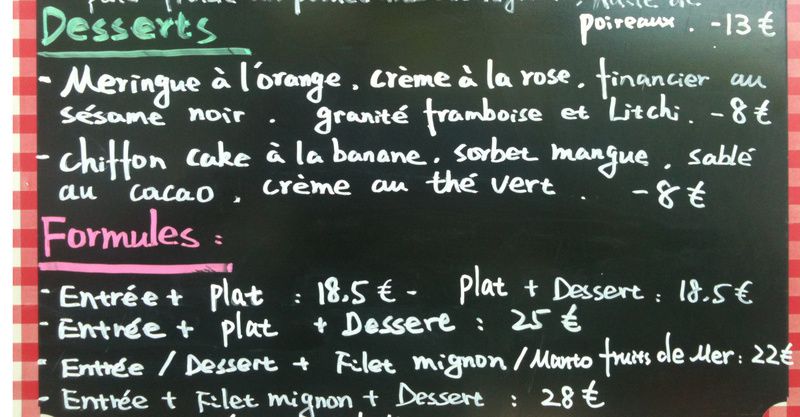 Desserts
poireaux. -13 €
- Meringue à l'orange, crème à la rose, financier au
sésame noir. granité framboise et Litchi. -8 €
- chiffon cake à la banane, sorbet mangue, sablé
au cacao, crème au thé vert. -8 €
Formules :
- Entrée + plat : 18,5 € - plat + Dessert : 18,5 €
- Entrée + plat + Dessere : 25 €
- Entrée / Dessert + Filet mignon / Manto fruits de Mer : 22 €
- Entrée + Filet mignon + Dessert : 28 €